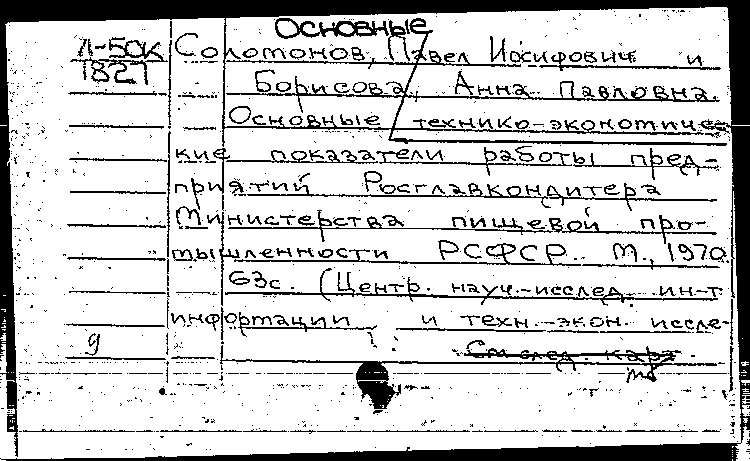 Основные
Л-50К Соломонов, Павел Иосифович и
1821 Борисова, Анна Павловна.
Основные технико-экономичес
кие показатели работы пред-
приятий Росглавкондитера
Министерства пищевой про-
мышленности РСФСР. М., 1970
63с. (Центр. науч.-исслед. ин-т
информации и техн.-экон. иссле-
д См след. карт.